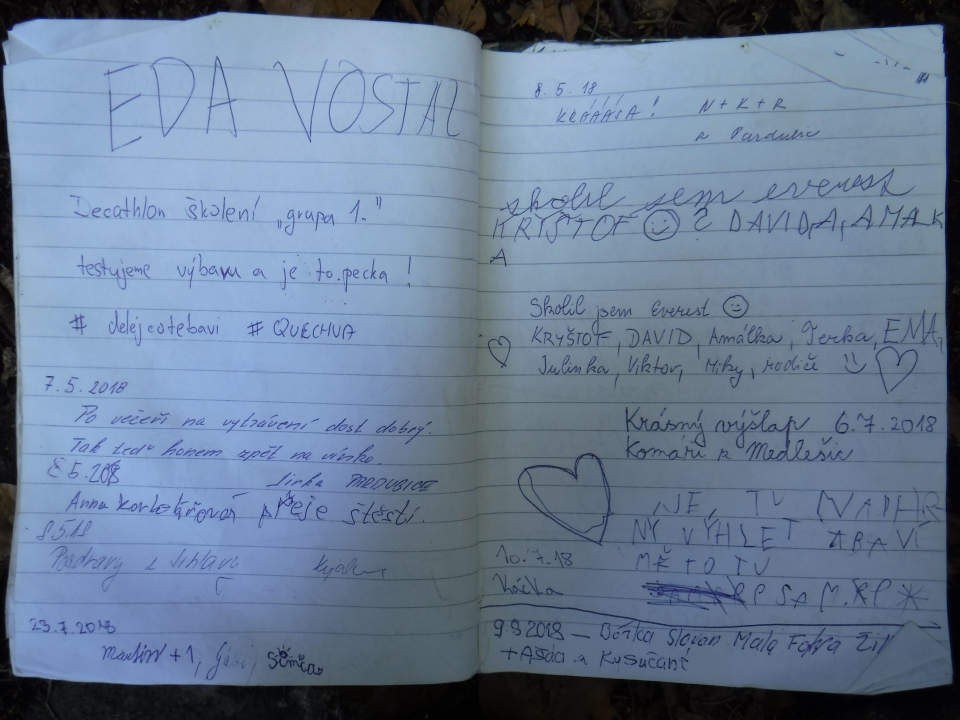 EDA VOSTAL
Decathlon školení „grupa 1."
testujeme výbavu a je to.pecka !
# delejcotebavi # QUECHUA
7.5.2018
Po večeři na vytrávení dost dobrý.
Tak teď honem zpět na
8.5.208 Jirka
Anna přeje štěstí.
8.5.18
Pozdravy z Jihlavy
23.7.2018
Martin +1, Gábi, Simča
8.5.18
KRÁÁÁSA! N+K+R
z Pardubic
skolil sem everest
KRYŠTOF Č DAVID,A,AMAK
A
Skolil jsem Everest
KRYŠTOF, DAVID, Amálka, Terka, EMA,
Julinka, Viktor, Miky, rodiče
Krásný výšlap 6.7.2018
Komáři z Medlešic
JE, TU
NÝ VÝHLET ABAVÍ
MĚ TO TU
10.7.18
Káčka
9.8.2018 — Borka Slovan Malá Fatra
+ Kusučané